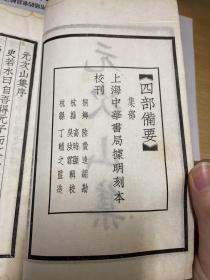 【四部備要】
集部
上海中華書局據明刻本
校刊
桐鄉 陸費逵總勘
杭縣 高時顯輯校
杭縣 吳汝霖輯校
杭縣 丁輔之監造
元次山集
元次山集序
史若水曰自吾得元子而